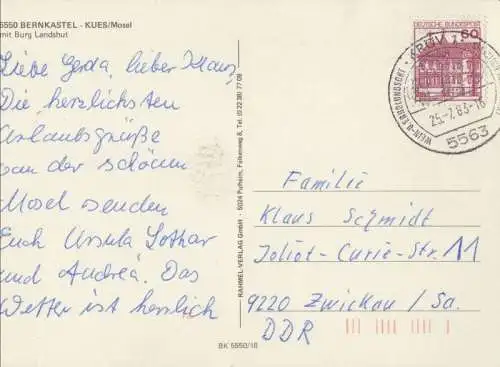 5550 BERNKASTEL - KUES/Mosel
mit Burg Landshut
Liebe Gerda, lieber Klaus,
Die herzlichsten
Urlaubsgrüße
von der schönen
Mosel senden
Euch Ursula Lothar
und Andrea. Das
Wetter ist herrlich
RAHMEL-VERLAG GmbH · 5024 Pulheim, Falkenweg 8, Tel. (0 22 38) 77 09
BK 5550/16
DEUTSCHE BUNDESPOST
60
25.-7.83-16
5563
Familie
Klaus Schmidt
Joliot-Curie-Str. 11
9220 Zwickau / Sa.
DDR